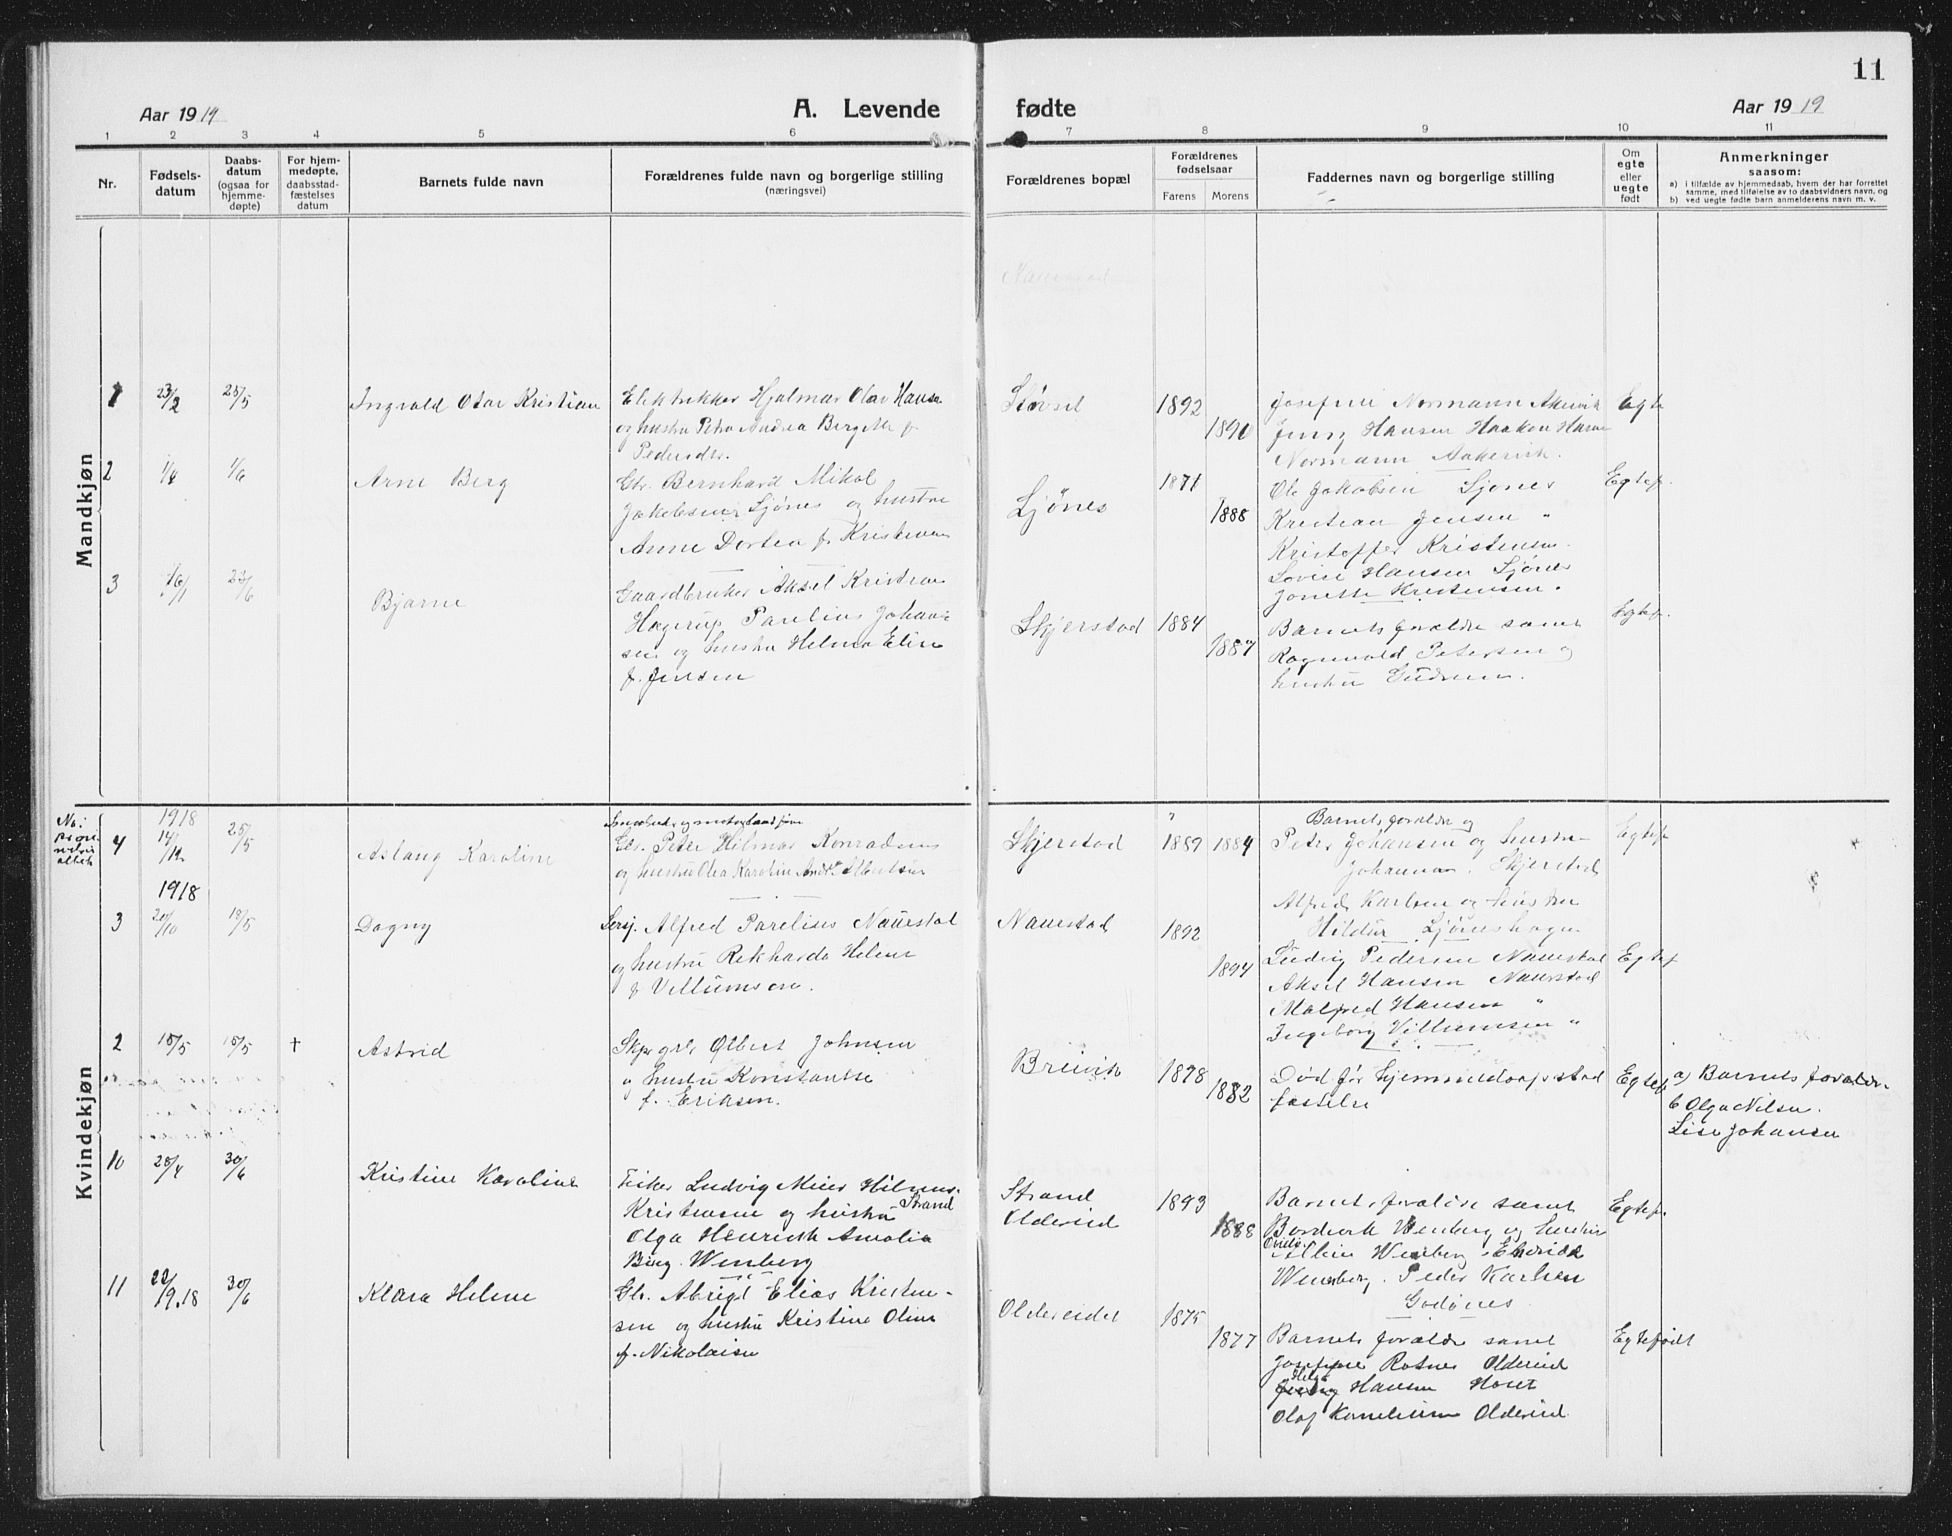 11
Aar 1919
A. Levende
fødte
Aar 1919
1 2 3 4 5 6 7 8 9 10 11
Nr.
Fødsels-
datum
Daabs-
datum
(ogsaa for
hjemme-
døpte)
For hjem-
medøpte,
daabsstad-
fæstelses
datum
Barnets fulde navn
Forældrenes fulde navn og borgerlige stilling
(næringsvei)
Forældrenes bopæl
Forældrenes
fødselsaar
Farens Morens
Faddernes navn og borgerlige stilling
Om
egte
eller
uegte
født
Anmerkninger
saasom:
a) i tilfælde av hjemmedaab, hvem der har forrettet
samme, med tilføielse av to daabsvidners navn, og
b) ved uegte fødte barn anmelderens navn m. v.
Mandkjøn
1 23/2 25/5
Ingvald Otar Kristian
Elektrikker Hjalmar Olav Hansen
og hustru Petra Andrea Bergitte f
Pedersdtr.
Støvset
1892
1890
Josefine Normann Akervik
Jensy Hansen Haakon Hansen
Normann Aakervik.
Egte
2 1/4 1/6
Arne Berg
Gbr. Bernhard Mikal
Jakobsen Ljønes og hustru
Anne Dortea f. Kristensen
Ljönes
1871
1888
Ole Jakobsen Ljones
Kristian Jensen "
Kristoffer Kristensen
Lovise Hansen Ljönes
Jonette Kristensen.
Egtef.
3 16/1 22/6
Bjarne
Gaardbruker Aksel Kristian
Hagerup Paulius Johan-
sen og hustru Helma Elin
f. Jensen
Skjerstad
1884
1887
Barnets forældre samt
Ragnvald Petersen og
hustru Gudrun.
Egtef.
Kvindekjøn
4
1918
14/12 25/5
Aslaug Karoline
Gbr. Peter Hilmar Konradsen
og hustru Olea Karolin Andr. Albertsen
Skjerstad
1889 1884
Barnets forældre og
Peter Johansen og hustru
Johanna. Skjerstad
Alfred Karlsen og hustru
Hildur Ljöneshagen
Egtef
1918
3 20/10 18/5
Dagny
Serj. Alfred Parelius Naurstad
og hustru Rikharda Helene
f Villumsen.
Naurstad
1892
1894
Ludvig Pedersen Naurstad
Aksel Hansen Naurstad
Malfred Hansen "
Ingeborg Villumsen "
Egtef
2 15/5 15/5 †
Astrid
Skpr gbr Olbert Johnsen
og hustru Konstanse
f. Eriksen.
Breivik
1878
1882
Død før hjemmedaapsstad
fæstelse
Egtef
a) Barnets forældre
b Olga Nilsen.
Lise Johansen
10 28/4 30/6
Kristine Karoline
Fisker Ludvig Meier Hilmer
Kristensen og hustru Strand
Olga Henrikke Amalia
Berg. Wenberg
Strand
Oldereid
1893
1888
Barnets forældre samt
Bardervk Wenberg og hustru
Wenberg. Peder Karlsen
Godönes
Egtef.
11 22/9.18 30/6
Klara Helene
Gbr. Abrigt Elias Kristen-
sen og hustru Kristine Oline
f. Nikolaisen
Oldereidet
1875
1877
Barnets forældre samt
Josefine Rotnes Oldereid
Helga
Hansen Horet
Olaf Korneliussen Oldereid
Egtefødt